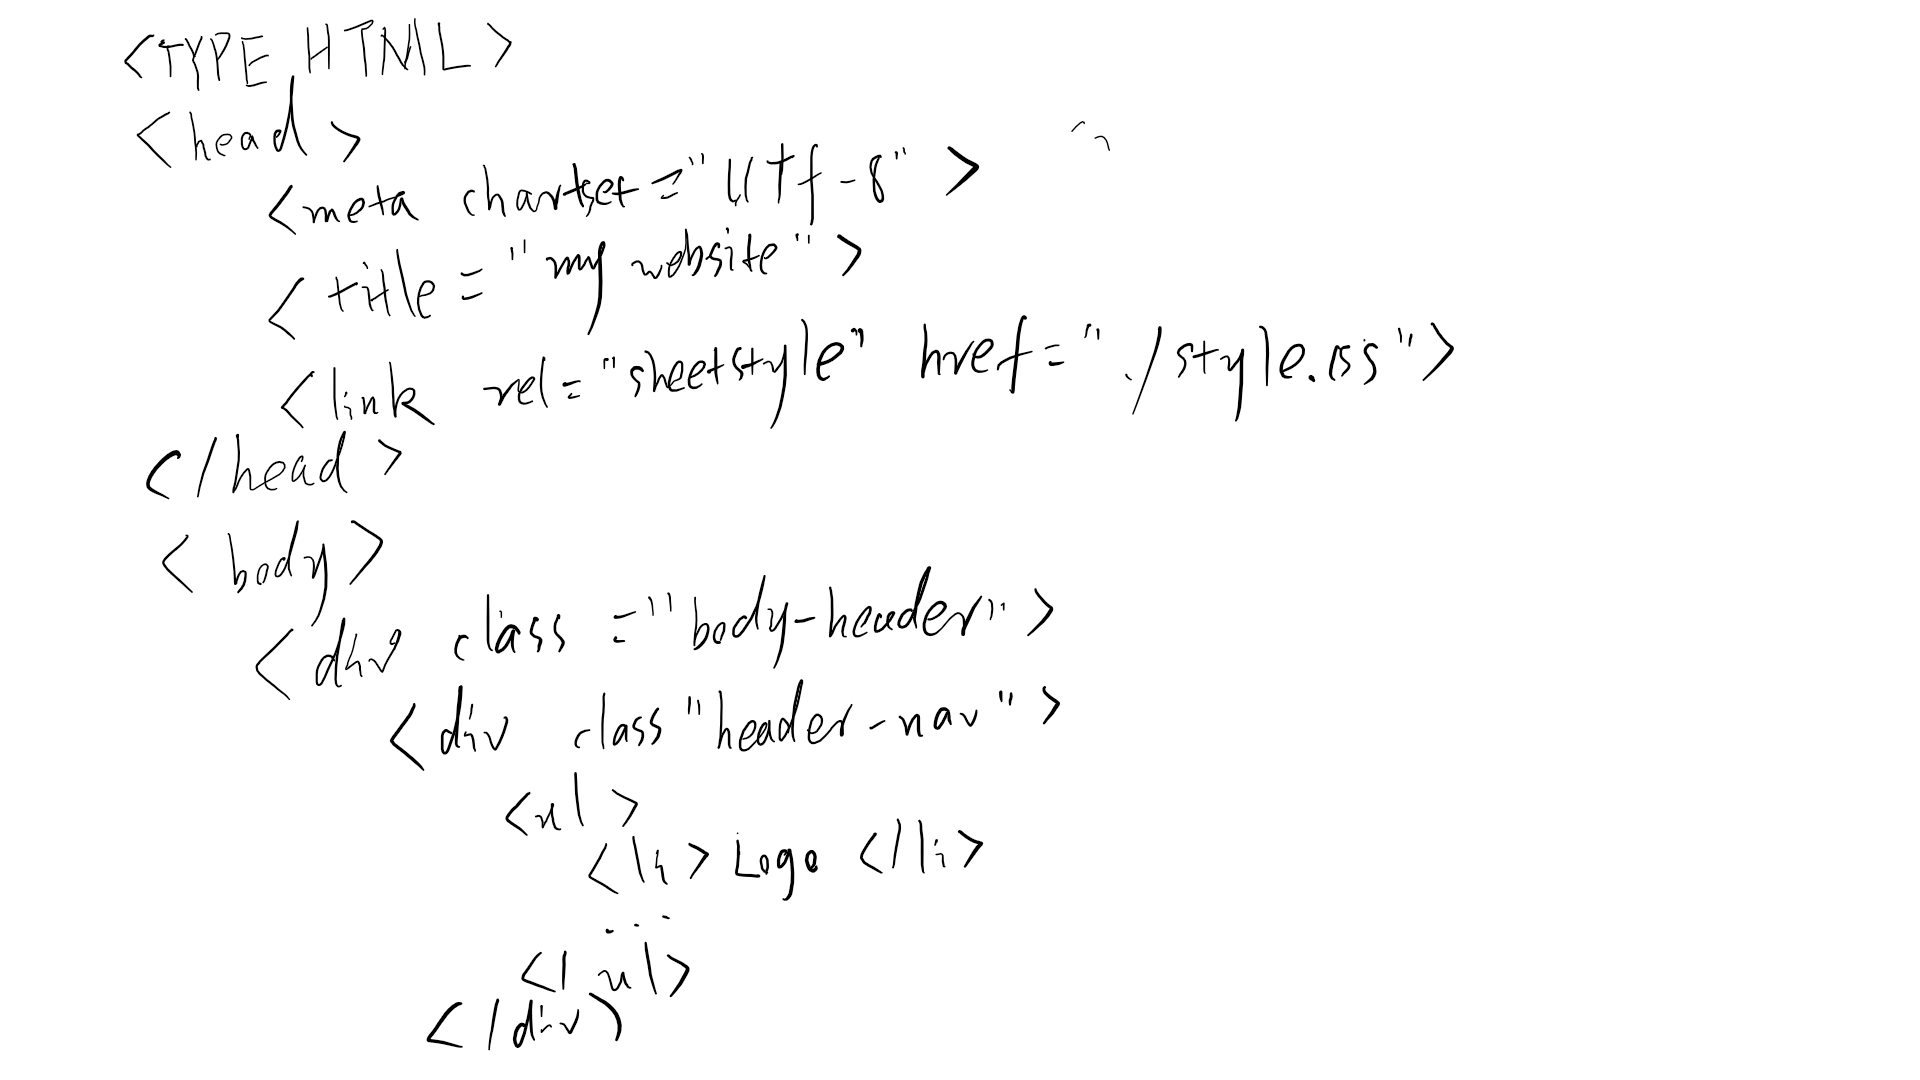 <TYPE HTML>
<head>
<meta chartset="UTf-8">
<title="my website">
<link rel="sheetstyle" href="./style.css">
</head>
<body>
<div class="body-header">
<div class"header-nav">
<ul>
<li>Logo</li>
...
</ul>
</div>